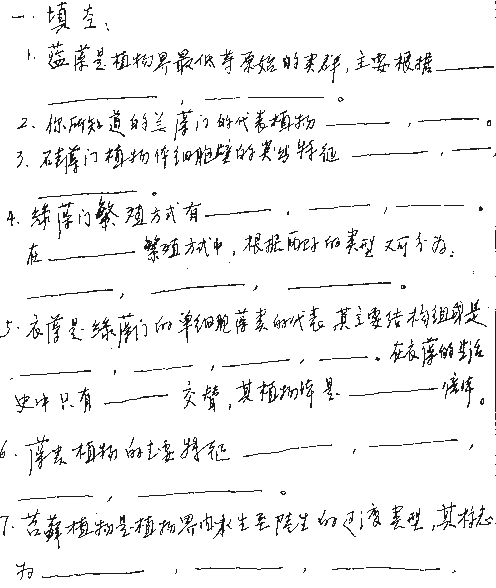 一、填空:
1. 蓝藻是植物界最低等原始的类群,主要根据____
____,____。
2. 你所知道的兰藻门的代表植物____,____。
3. 硅藻门植物体细胞壁的突出特征____,____,
____。
4. 绿藻门繁殖方式有____,____,____。
在____繁殖方式中,根据配子的类型又可分为:
____,____,____。
5. 衣藻是绿藻门的单细胞藻类的代表,其主要结构组成是
____,____,____,____。在衣藻的生活
史中只有____交替,其植物体是____倍体。
6. 藻类植物的主要特征____,____,
____,____。
7. 苔藓植物是植物界由水生至陆生的过渡类型,其标志
为____,____,____.